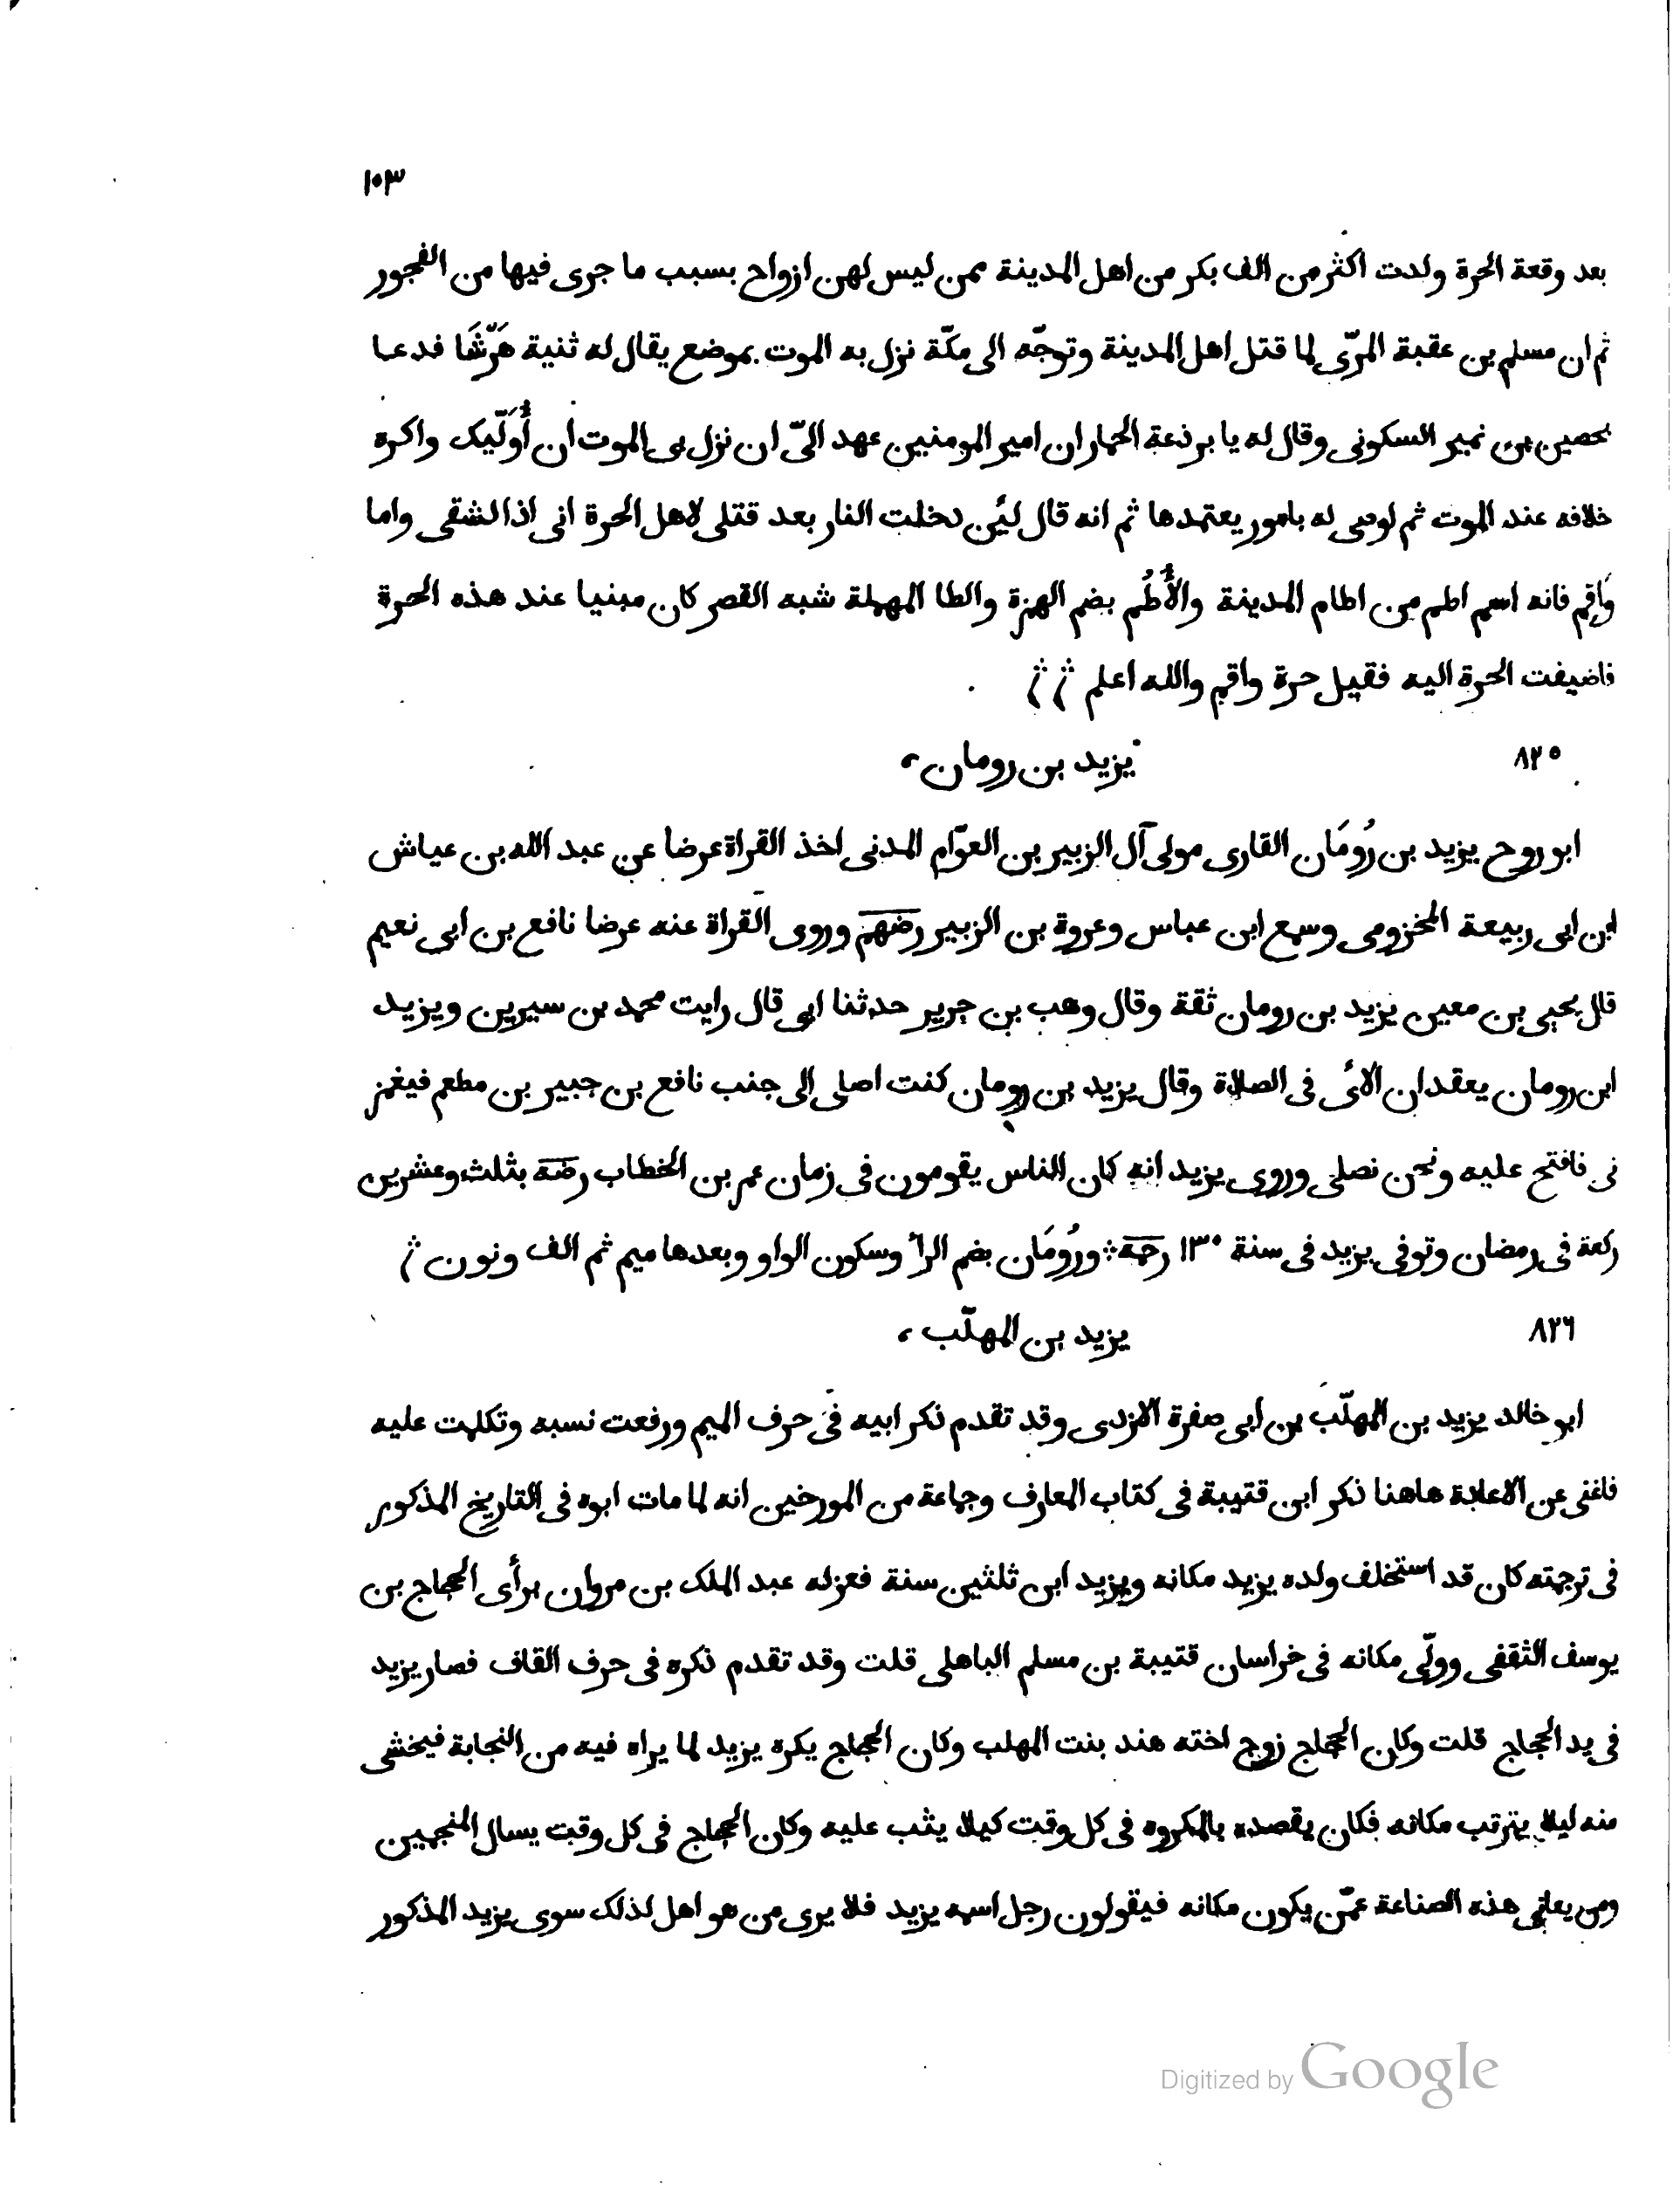 ١٠٣
بعد وقعة الحرة ولدت اكثر من الف بكر من اهل المدينة ممن ليس لهن ازواج بسبب ما جرى فيها من الفجور
ثم ان مسلم بن عقبة المرّى لما قتل اهل المدينة وتوجّه الى مكّة نزل به الموت بموضع يقال له ثنية هَرْشَا فدعا
بحصين بن نمير السكونى وقال له يا برذعة الحمار ان امير المومنين عهد الىّ ان نزل بى الموت ان أُوَلّيك واكره
خلافه عند الموت ثم اوصى له بامور يعتمدها ثم انه قال لئن دخلت النار بعد قتلى لاهل الحرة انى اذا لشقى واما
وَاقم فانه اسم اطم من اطام المدينة والأُطُم بضم الهمزة والطا المهملة شبه القصر كان مبنيا عند هذه الحرة
فاضيفت الحرة اليه فقيل حرة واقم والله اعلم
٨٢٥ يزيد بن رومان،
ابو روح يزيد بن رُومَان القارى مولى آل الزبير بن العوّام المدنى اخذ القراة عرضا عن عبد الله بن عياش
ابن ابى ربيعة المخزومى وسمع ابن عباس وعروة بن الزبير رضهم وروى القراة عنه عرضا نافع بن ابى نعيم
قال يحيى بن معين يزيد بن رومان ثقة وقال وهب بن جرير حدثنا ابى قال رايت محمد بن سيرين ويزيد
ابن رومان يعقدان الائ فى الصلاة وقال يزيد بن رومان كنت اصلى الى جنب نافع بن جبير بن مطعم فيغمز
نى فافتح عليه ونحن نصلى وروى يزيد انه كان الناس يقومون فى زمان عمر بن الخطاب رضه بثلث وعشرين
ركعة فى رمضان وتوفى يزيد فى سنة ١٣٠ رحه ورُومَان بضم الرا وسكون الواو وبعدها ميم ثم الف ونون
٨٢٦ يزيد بن المهلّب،
ابو خالد يزيد بن المهلّب بن ابى صفرة الازدى وقد تقدم ذكر ابيه فى حرف الميم ورفعت نسبه وتكلمت عليه
فاغنى عن الاعادة هاهنا ذكر ابن قتيبة فى كتاب المعارف وجماعة من المورخين انه لما مات ابوه فى التاريخ المذكور
فى ترجمته كان قد استخلف ولده يزيد مكانه ويزيد ابن ثلثين سنة فعزله عبد الملك بن مروان برأى الحجاج بن
يوسف الثقفى وولّى مكانه فى خراسان قتيبة بن مسلم الباهلى قلت وقد تقدم ذكره فى حرف القاف فصار يزيد
فى يد الحجاج قلت وكان الحجاج زوج اخته هند بنت المهلب وكان الحجاج يكره يزيد لما يراه فيه من النجابة فيخشى
منه ليلا يترتب مكانه فكان يقصده بالمكروه فى كل وقت كيلا يثب عليه وكان الحجاج فى كل وقت يسال المنجمين
ومن يعانى هذه الصناعة عمّن يكون مكانه فيقولون رجل اسمه يزيد فلا يرى من هو اهل لذلك سوى يزيد المذكور
Digitized by Google